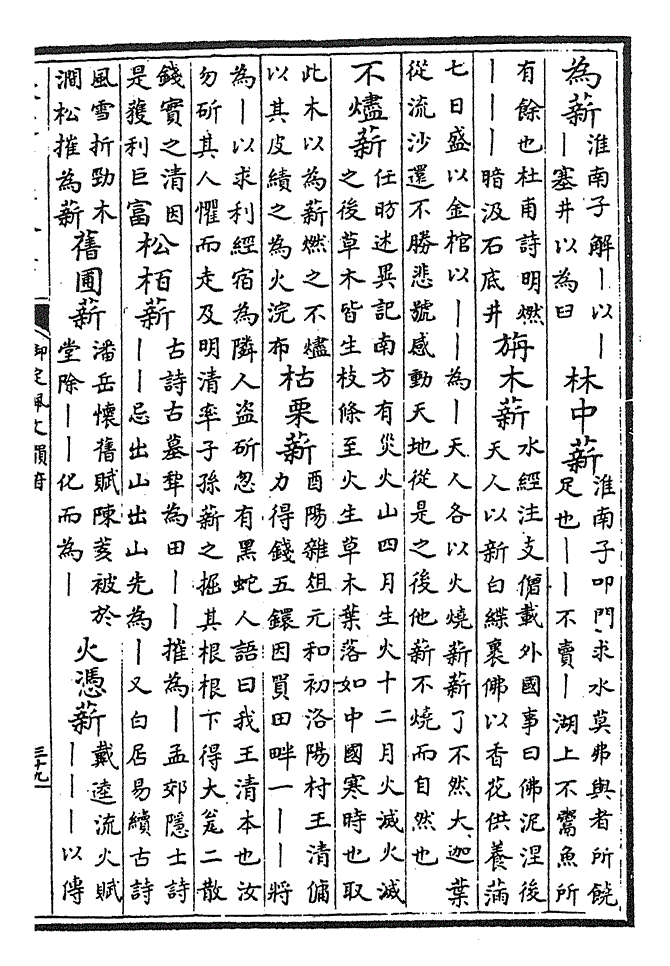 為薪
淮南子解｜以｜
｜塞井以為臼
林中薪
淮南子叩門求水莫弗與者所饒
足也｜｜不賣｜湖上不鬻魚所
有餘也杜甫詩明燃
｜｜｜暗汲石底井
旃木薪
水經注支僧載外國事曰佛泥洹後
天人以新白緤裹佛以香花供養滿
七日盛以金棺以｜｜為｜天人各以火燒薪薪了不然大迦葉
從流沙還不勝悲號感動天地從是之後他薪不燒而自然也
不燼薪
任昉述異記南方有災火山四月生火十二月火滅火滅
之後草木皆生枝條至火生草木葉落如中國寒時也取
此木以為薪燃之不燼
以其皮績之為火浣布
枯栗薪
酉陽雜俎元和初洛陽村王清傭
力得錢五鐶因買田畔一｜｜將
為｜以求利經宿為隣人盜斫忽有黑蛇人語曰我王清本也汝
勿斫其人懼而走及明清率子孫薪之掘其根根下得大瓮二散
錢實之清因
是獲利巨富
松栢薪
古詩古墓犂為田｜｜摧為｜孟郊隱士詩
｜｜忌出山出山先為｜又白居易續古詩
風雪折勁木
澗松摧為薪
舊圃薪
潘岳懷舊賦陳荄被於
堂除｜｜化而為｜
火憑薪
戴逵流火賦
｜｜｜以傳
御定佩文韻府
三十九